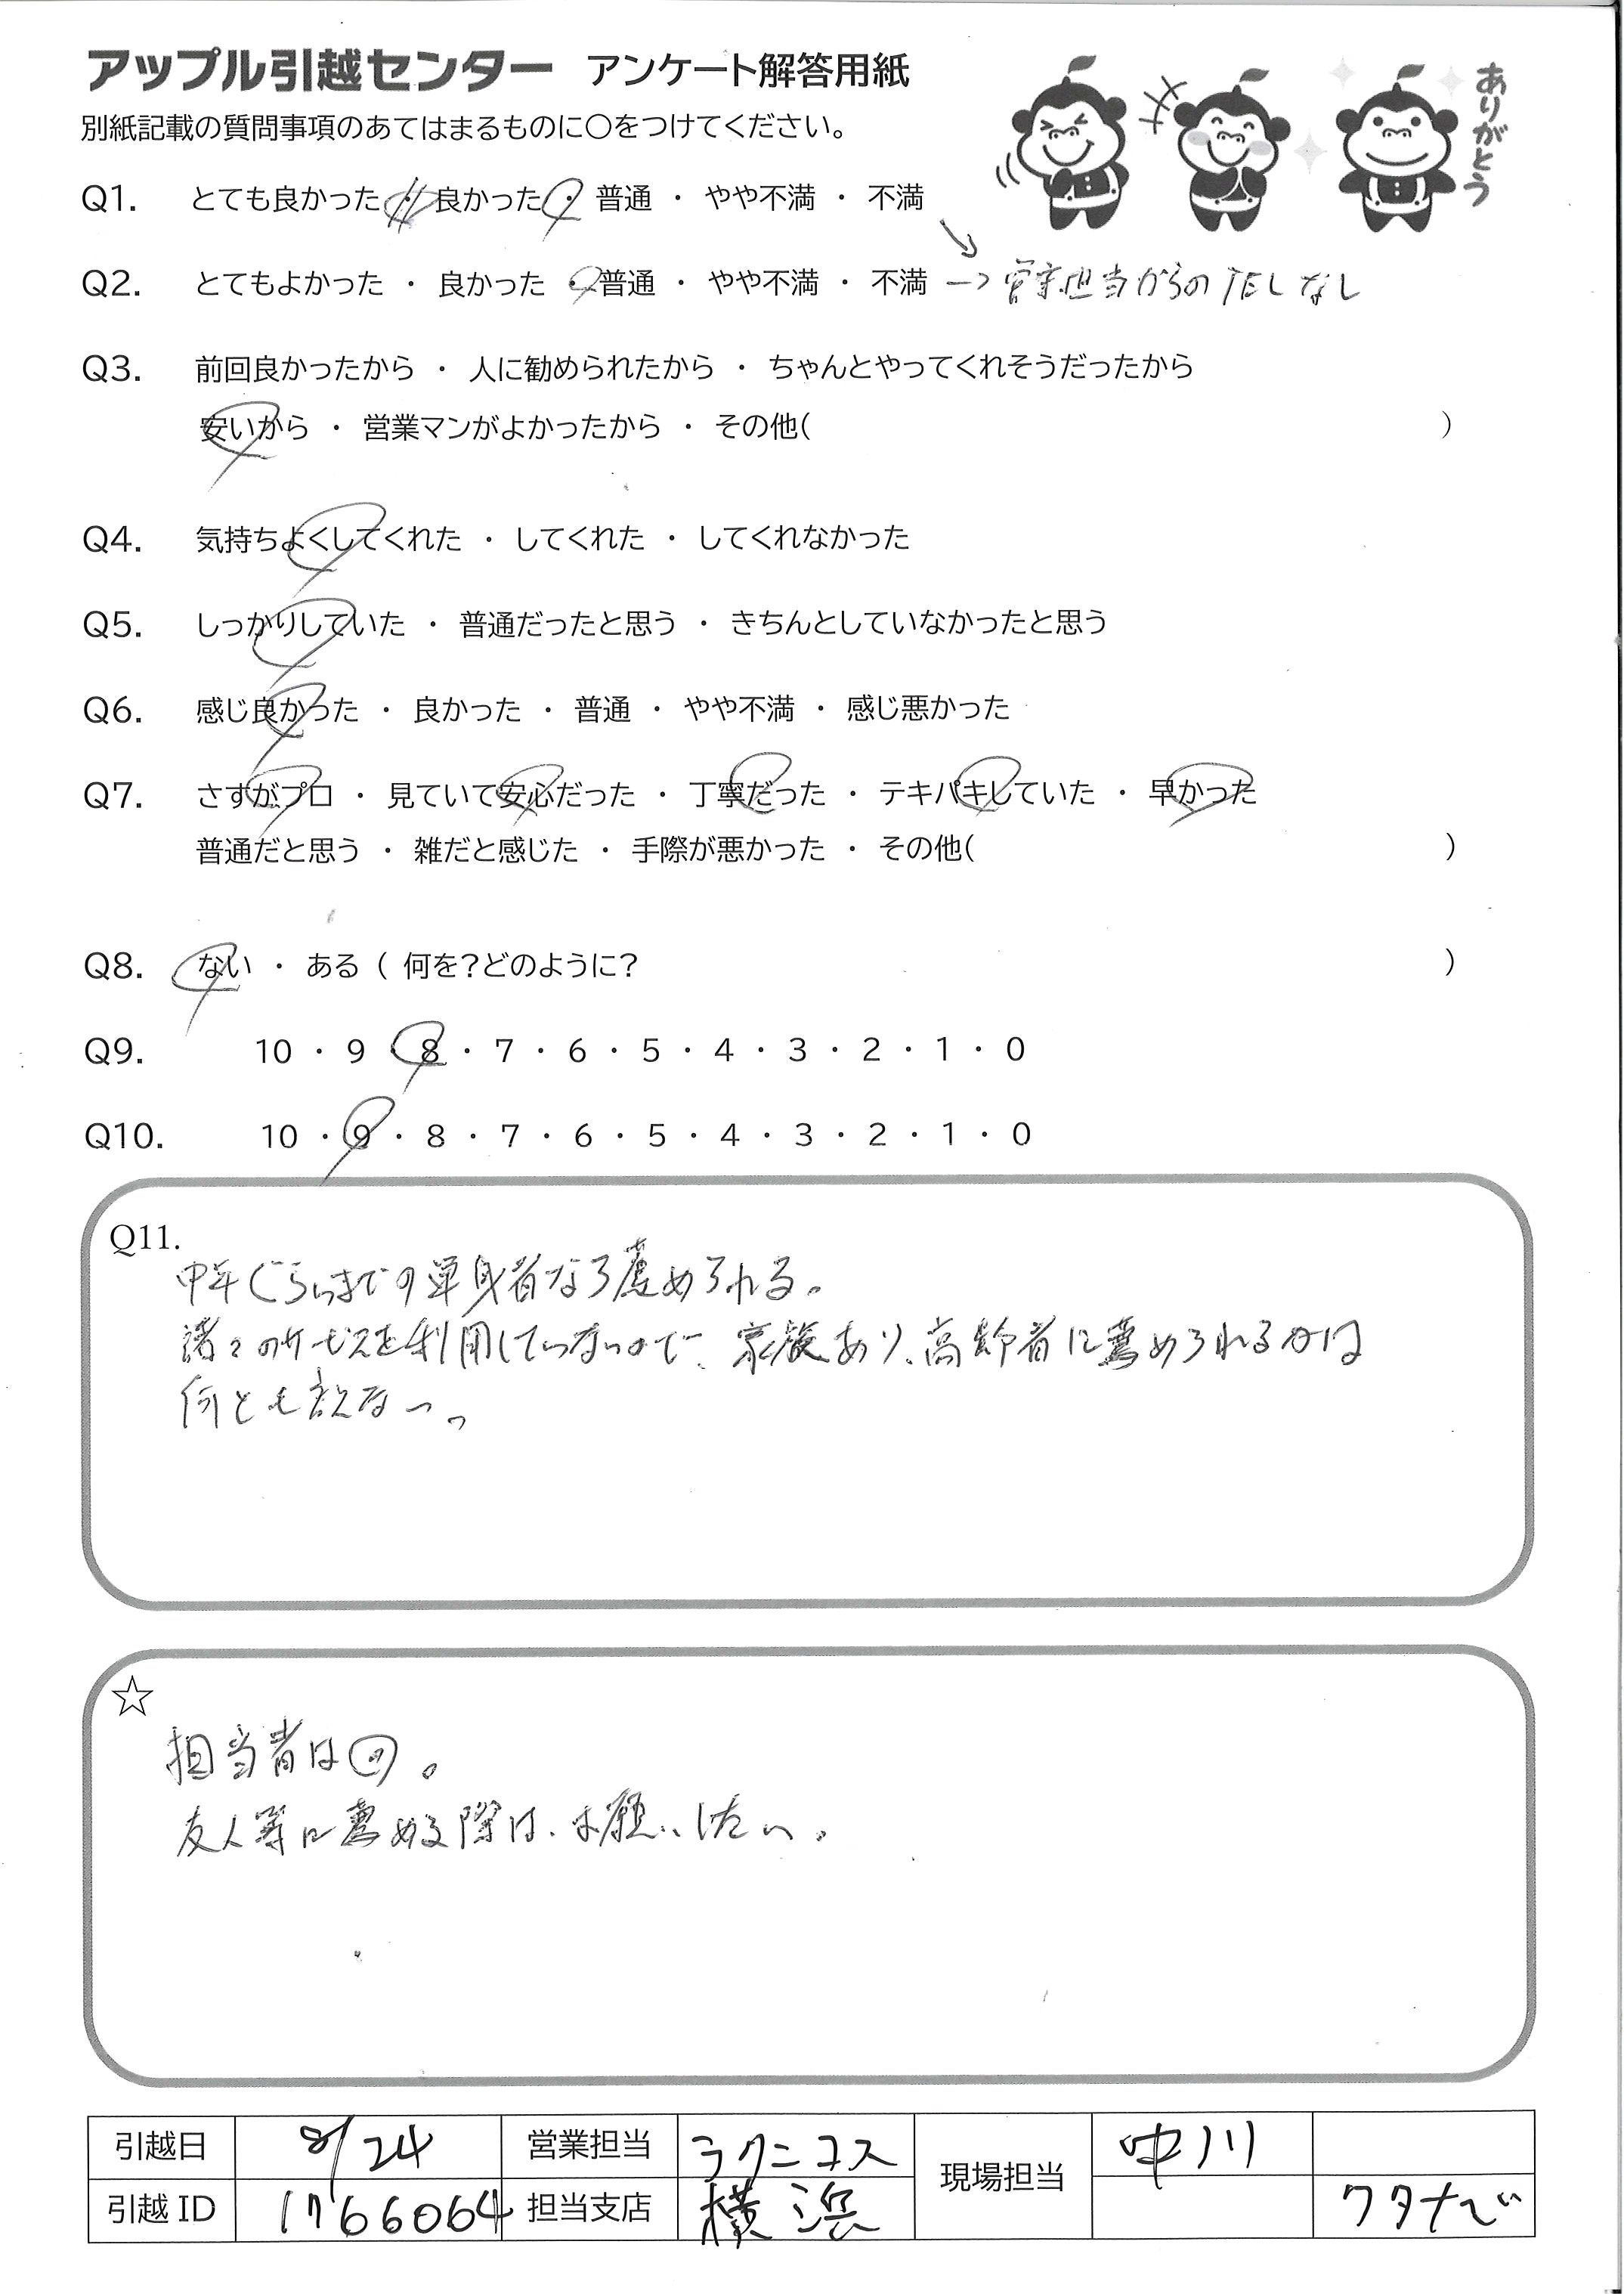 アップル引越センター アンケート解答用紙
別紙記載の質問事項のあてはまるものに○をつけてください。
ありがとう
Q1. とても良かった ・ 良かった ・ 普通 ・ やや不満 ・ 不満
Q2. とてもよかった ・ 良かった ・ 普通 ・ やや不満 ・ 不満 → 営業担当からのTELなし
Q3. 前回良かったから ・ 人に勧められたから ・ ちゃんとやってくれそうだったから
安いから ・ 営業マンがよかったから ・ その他( )
Q4. 気持ちよくしてくれた ・ してくれた ・ してくれなかった
Q5. しっかりしていた ・ 普通だったと思う ・ きちんとしていなかったと思う
Q6. 感じ良かった ・ 良かった ・ 普通 ・ やや不満 ・ 感じ悪かった
Q7. さすがプロ ・ 見ていて安心だった ・ 丁寧だった ・ テキパキしていた ・ 早かった
普通だと思う ・ 雑だと感じた ・ 手際が悪かった ・ その他( )
Q8. ない ・ ある ( 何を?どのように? )
Q9. 10 ・ 9 ・ 8 ・ 7 ・ 6 ・ 5 ・ 4 ・ 3 ・ 2 ・ 1 ・ 0
Q10. 10 ・ 9 ・ 8 ・ 7 ・ 6 ・ 5 ・ 4 ・ 3 ・ 2 ・ 1 ・ 0
Q11.
中年ぐらいまでの単身者なら薦められる。
諸々のサービスを利用していないので、家族あり、高齢者に薦められるかは
何とも言えない。
☆
担当者は
友人等に薦める際は、お願いしたい。
引越日 8/24 営業担当 ラクニコス 現場担当 中川
引越ID 1766064 担当支店 横浜 ワタナベ